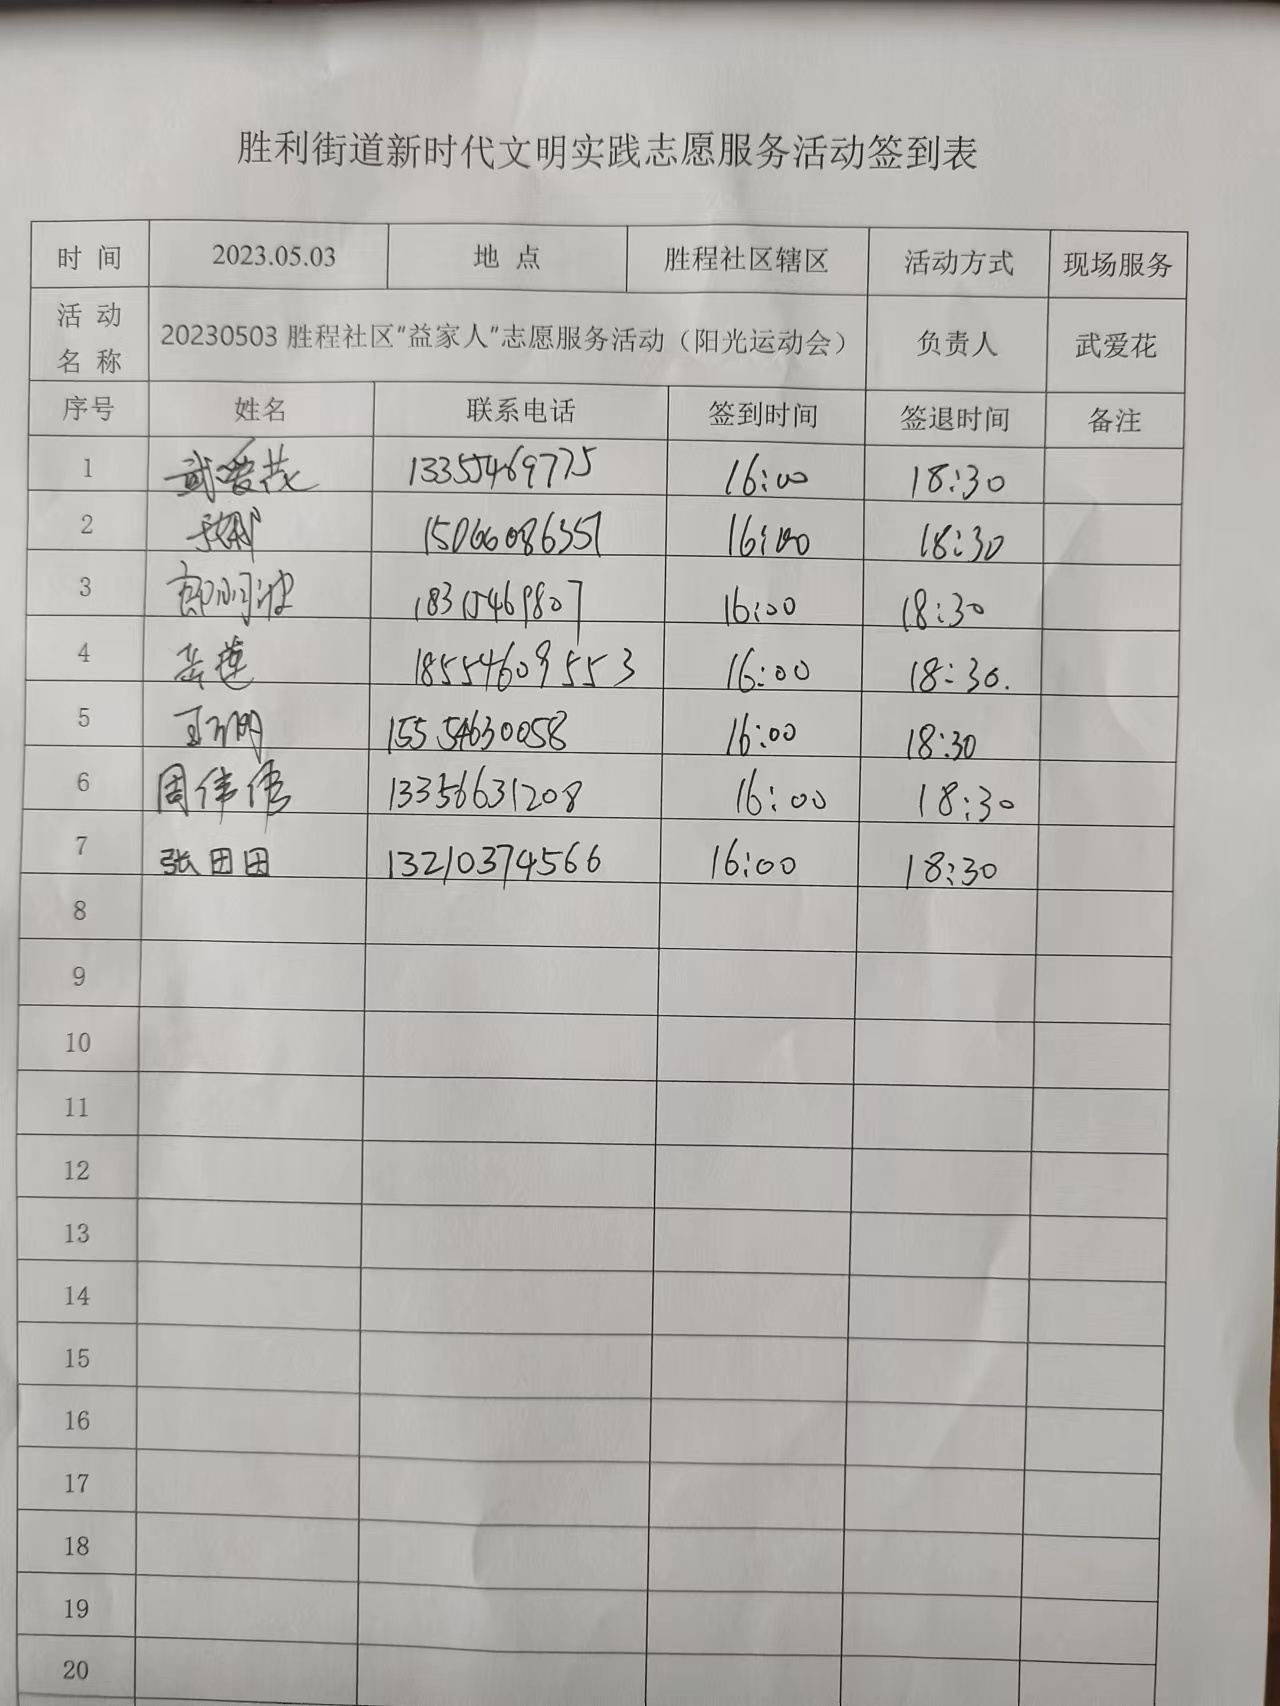 胜利街道新时代文明实践志愿服务活动签到表
时 间 2023.05.03 地 点 胜程社区辖区 活动方式 现场服务
活 动 名 称 20230503 胜程社区“益家人”志愿服务活动（阳光运动会） 负责人 武爱花
序号 姓名 联系电话 签到时间 签退时间 备注
1 武爱花 13355469775 16:00 18:30
2 15066086357 16:00 18:30
3 18315469807 16:00 18:30
4 岳莲 18554609553 16:00 18:30.
5 15554630058 16:00 18:30
6 周伟倩 13356631208 16:00 18:30
7 张田田 13210374566 16:00 18:30
8
9
10
11
12
13
14
15
16
17
18
19
20